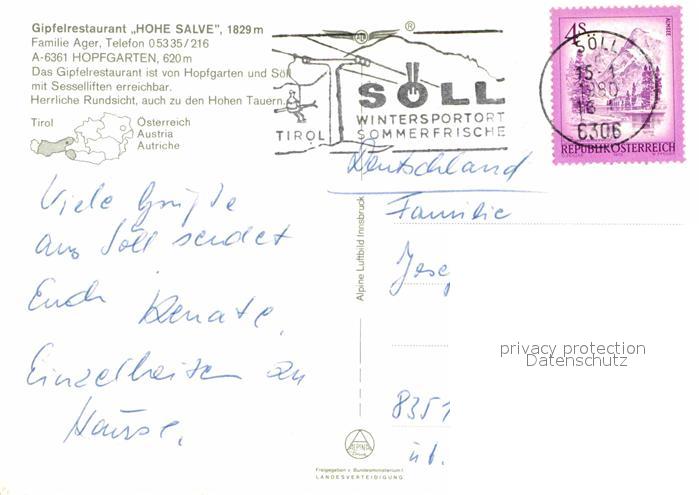 Gipfelrestaurant „HOHE SALVE", 1829 m
Familie Ager, Telefon 0 53 35 / 216
A-6361 HOPFGARTEN, 620 m
Das Gipfelrestaurant ist von Hopfgarten und Söll
mit Sesselliften erreichbar.
Herrliche Rundsicht, auch zu den Hohen Tauern.
Tirol
Österreich
Austria
Autriche
®
SÖLL
WINTERSPORTORT
SOMMERFRISCHE
TIROL
4S
ALMSEE
REPUBLIK ÖSTERREICH
SÖLL
15.-1
1980-
6306
Viele Grüße
aus Söll sendet
Euch Renate.
Einzelheiten zu
Hause.
Deutschland
Familie
8351
privacy protection
Datenschutz
Alpine Luftbild Innsbruck
ALPINE
Freigegeben v. Bundesministerium f.
LANDESVERTEIDIGUNG